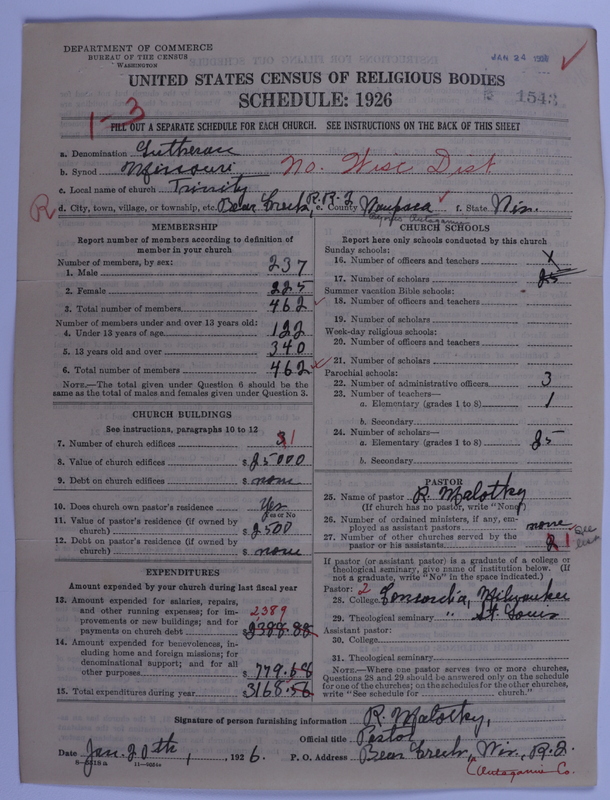 DEPARTMENT OF COMMERCE
BUREAU OF THE CENSUS
WASHINGTON
JAN 24 1926
UNITED STATES CENSUS OF RELIGIOUS BODIES
SCHEDULE: 1926
1542
1-3
FILL OUT A SEPARATE SCHEDULE FOR EACH CHURCH. SEE INSTRUCTIONS ON THE BACK OF THIS SHEET
a. Denomination Lutheran
b. Synod Missouri No. Wisc Dist
c. Local name of church Trinity
R d. City, town, village, or township, etc. Bear Creek, R.R.2 e. County Waupaca f. State Wis.
Outagamie
MEMBERSHIP
Report number of members according to definition of member in your church
Number of members, by sex:
1. Male 237
2. Female 225
3. Total number of members 462
Number of members under and over 13 years old:
4. Under 13 years of age 122
5. 13 years old and over 340
6. Total number of members 462
NOTE.—The total given under Question 6 should be the same as the total of males and females given under Question 3.
CHURCH BUILDINGS
See instructions, paragraphs 10 to 12
7. Number of church edifices 1
8. Value of church edifices $ 25000
9. Debt on church edifices $ none
10. Does church own pastor's residence Yes
Yes or No
11. Value of pastor's residence (if owned by church) $ 2500
12. Debt on pastor's residence (if owned by church) $ none
EXPENDITURES
Amount expended by your church during last fiscal year
13. Amount expended for salaries, repairs, and other running expenses; for improvements or new buildings; and for payments on church debt $ 2388.88
2389
14. Amount expended for benevolences, including home and foreign missions; for denominational support; and for all other purposes $ 779.68
15. Total expenditures during year $ 3168.56
CHURCH SCHOOLS
Report here only schools conducted by this church
Sunday schools:
16. Number of officers and teachers X
17. Number of scholars 25
Summer vacation Bible schools:
18. Number of officers and teachers
19. Number of scholars
Week-day religious schools:
20. Number of officers and teachers
21. Number of scholars
Parochial schools:
22. Number of administrative officers 3
23. Number of teachers—
a. Elementary (grades 1 to 8) 1
b. Secondary
24. Number of scholars—
a. Elementary (grades 1 to 8) 25
b. Secondary
PASTOR
25. Name of pastor R. Malotky
(If church has no pastor, write "None")
26. Number of ordained ministers, if any, employed as assistant pastors none
27. Number of other churches served by the pastor or his assistants 1
If pastor (or assistant pastor) is a graduate of a college or theological seminary, give name of institution below. (If not a graduate, write "No" in the space indicated.)
Pastor: 2
28. College Concordia, Milwaukee
29. Theological seminary " St. Louis
Assistant pastor:
30. College
31. Theological seminary
NOTE.—Where one pastor serves two or more churches, Questions 28 and 29 should be answered only on the schedule for one of the churches; on the schedules for the other churches, write "See schedule for church."
Signature of person furnishing information R. Malotky,
Official title Pastor
Date Jan. 20th, , 1926. P. O. Address Bear Creek, Wis., R. 2.
(Outagamie Co.